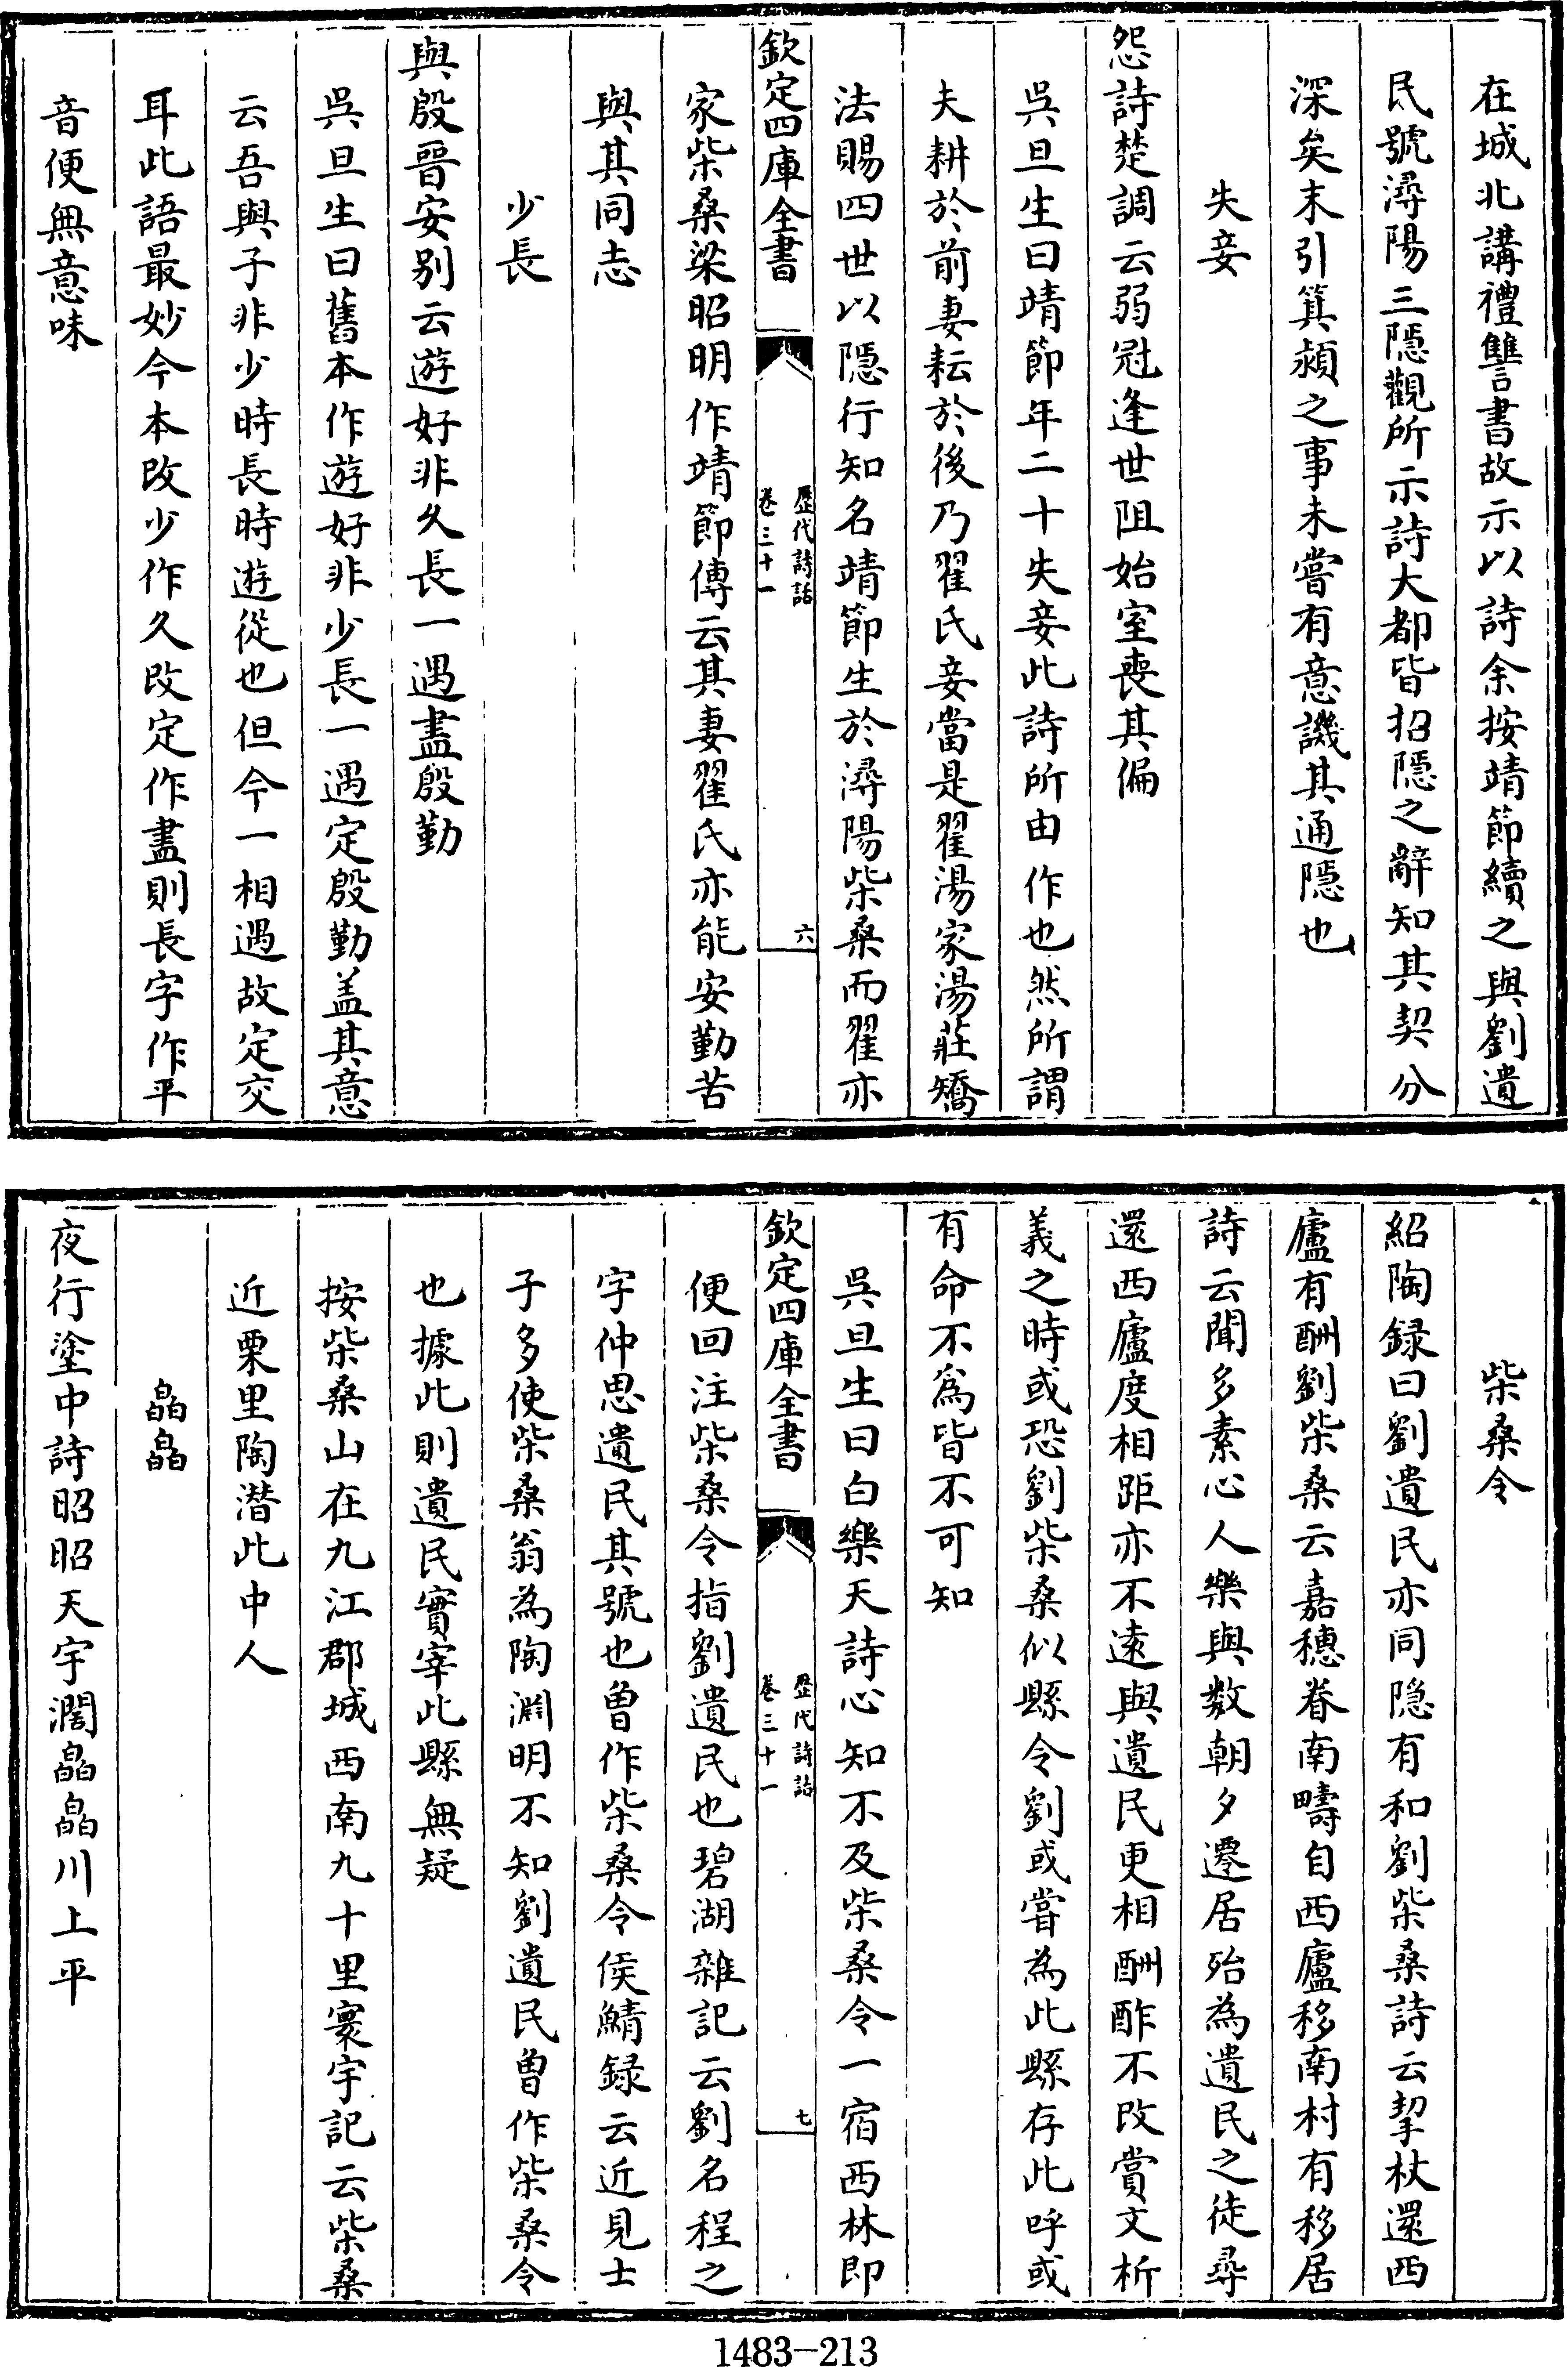 在城北講禮讐書故示以詩余按靖節續之與劉遺
民號潯陽三隱觀所示詩大都皆招隱之辭知其契分
深矣末引箕潁之事未嘗有意譏其通隱也
失妾
怨詩楚調云弱冠逢世阻始室喪其偏
吳旦生曰靖節年二十失妾此詩所由作也然所謂
夫耕於前妻耘於後乃翟氏妾當是翟湯家湯莊矯
法賜四世以隱行知名靖節生於潯陽柴桑而翟亦
欽定四庫全書
歷代詩話
卷三十一
六
家柴桑梁昭明作靖節傳云其妻翟氏亦能安勤苦
與其同志
少長
與殷晉安别云遊好非久長一遇盡殷勤
吳旦生曰舊本作遊好非少長一遇定殷勤盖其意
云吾與子非少時長時遊從也但今一相遇故定交
耳此語最妙今本改少作久改定作盡則長字作平
音便無意味
柴桑令
紹陶録曰劉遺民亦同隱有和劉柴桑詩云挈杖還西
廬有酬劉柴桑云嘉穗眷南疇自西廬移南村有移居
詩云聞多素心人樂與數朝夕遷居殆為遺民之徒尋
還西廬度相距亦不遠與遺民更相酬酢不改賞文析
義之時或恐劉柴桑似縣令劉或嘗為此縣存此呼或
有命不爲皆不可知
吳旦生曰白樂天詩心知不及柴桑令一宿西林即
欽定四庫全書
歷代詩話
卷三十一
七
便回注柴桑令指劉遺民也碧湖雜記云劉名程之
字仲思遺民其號也曾作柴桑令侯鯖録云近見士
子多使柴桑翁為陶淵明不知劉遺民曾作柴桑令
也據此則遺民實宰此縣無疑
按柴桑山在九江郡城西南九十里寰宇記云柴桑
近栗里陶潛此中人
皛皛
夜行塗中詩昭昭天宇濶皛皛川上平
1483-213